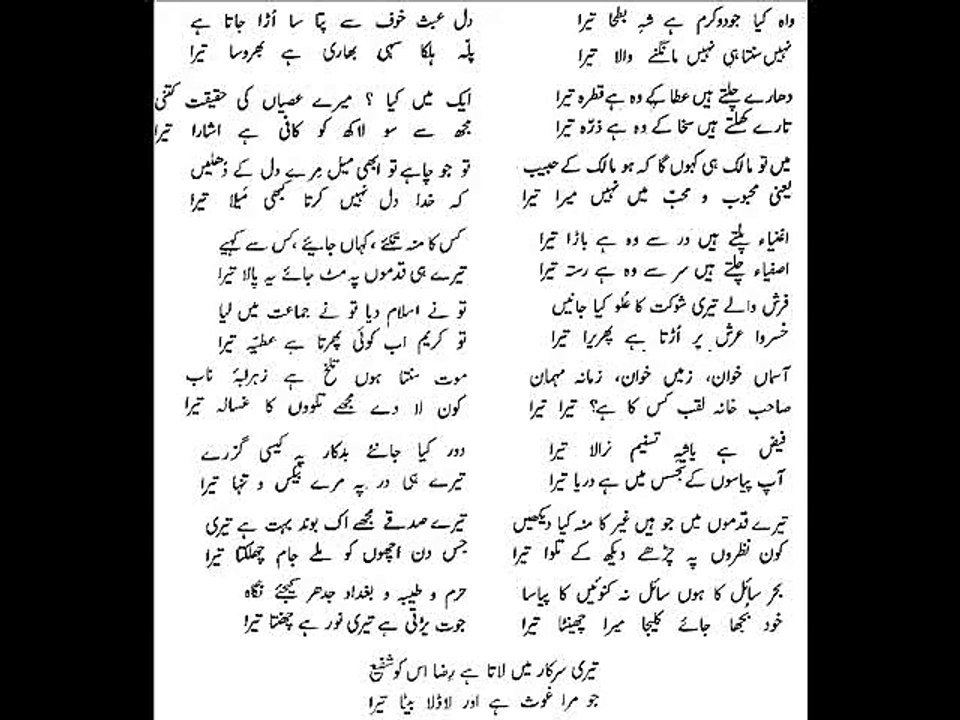 واہ کیا جودوکرم ہے شہِ بطحا تیرا
نہیں سنتا ہی نہیں مانگنے والا تیرا
دھارے چلتے ہیں عطا کے وہ ہے قطرہ تیرا
تارے کھلتے ہیں سخا کے وہ ہے ذرّہ تیرا
میں تو مالک ہی کہوں گا کہ ہو مالک کے حبیب
یعنی محبوب و محبّ میں نہیں میرا تیرا
اغنیاء پلتے ہیں در سے وہ ہے باڑا تیرا
اصفیاء چلتے ہیں سر سے وہ ہے رستہ تیرا
فرش والے تیری شوکت کا عُلو کیا جانیں
خسروا عرش پر اُڑتا ہے پھریرا تیرا
آسماں خوان، زمیں خوان، زمانہ مہمان
صاحب خانہ لقب کس کا ہے؟ تیرا تیرا
فیض ہے یاشہِ تسنیم نرالا تیرا
آپ پیاسوں کے تجسس میں ہے دریا تیرا
تیرے قدموں میں جو ہیں غیر کا منہ کیا دیکھیں
کون نظروں پہ چڑھے دیکھ کے تلوا تیرا
بحر سائل کا ہوں سائل نہ کنوئیں کا پیاسا
خود بُجھا جائے کلیجا میرا چھینٹا تیرا
دل عبث خوف سے پتا سا اُڑا جاتا ہے
پلّہ ہلکا سہی بھاری ہے بھروسا تیرا
ایک میں کیا ؟ میرے عصیاں کی حقیقت کتنی
مجھ سے سو لاکھ کو کافی ہے اشارا تیرا
تو جو چاہے تو ابھی میل مِرے دل کے دُھلیں
کہ خدا دل نہیں کرتا کبھی مَیلا تیرا
کس کا منہ تکئے ،کہاں جائیے ،کس سے کہیے
تیرے ہی قدموں پہ مٹ جائے یہ پالا تیرا
تو نے اسلام دیا تو نے جماعت میں لیا
تو کریم اب کوئی پھرتا ہے عطیّہ تیرا
موت سنتا ہوں تلخ ہے زہرابۂ ناب
کون لا دے مجھے تلووں کا غسالہ تیرا
دور کیا جانئے بدکار پہ کیسی گزرے
تیرے ہی در پہ مرے بیکس و تنہا تیرا
تیرے صدقے مجھے اک بوند بہت ہے تیری
جس دن اچھوں کو ملے جام چھلکتا تیرا
حرم و طیبہ و بغداد جدھر کیجئے نگاہ
جوت پڑتی ہے تیری نور ہے چھنتا تیرا
تیری سرکار میں لاتا ہے رضا اس کو شفیع
جو مرا غوث ہے اور لاڈلا بیٹا تیرا